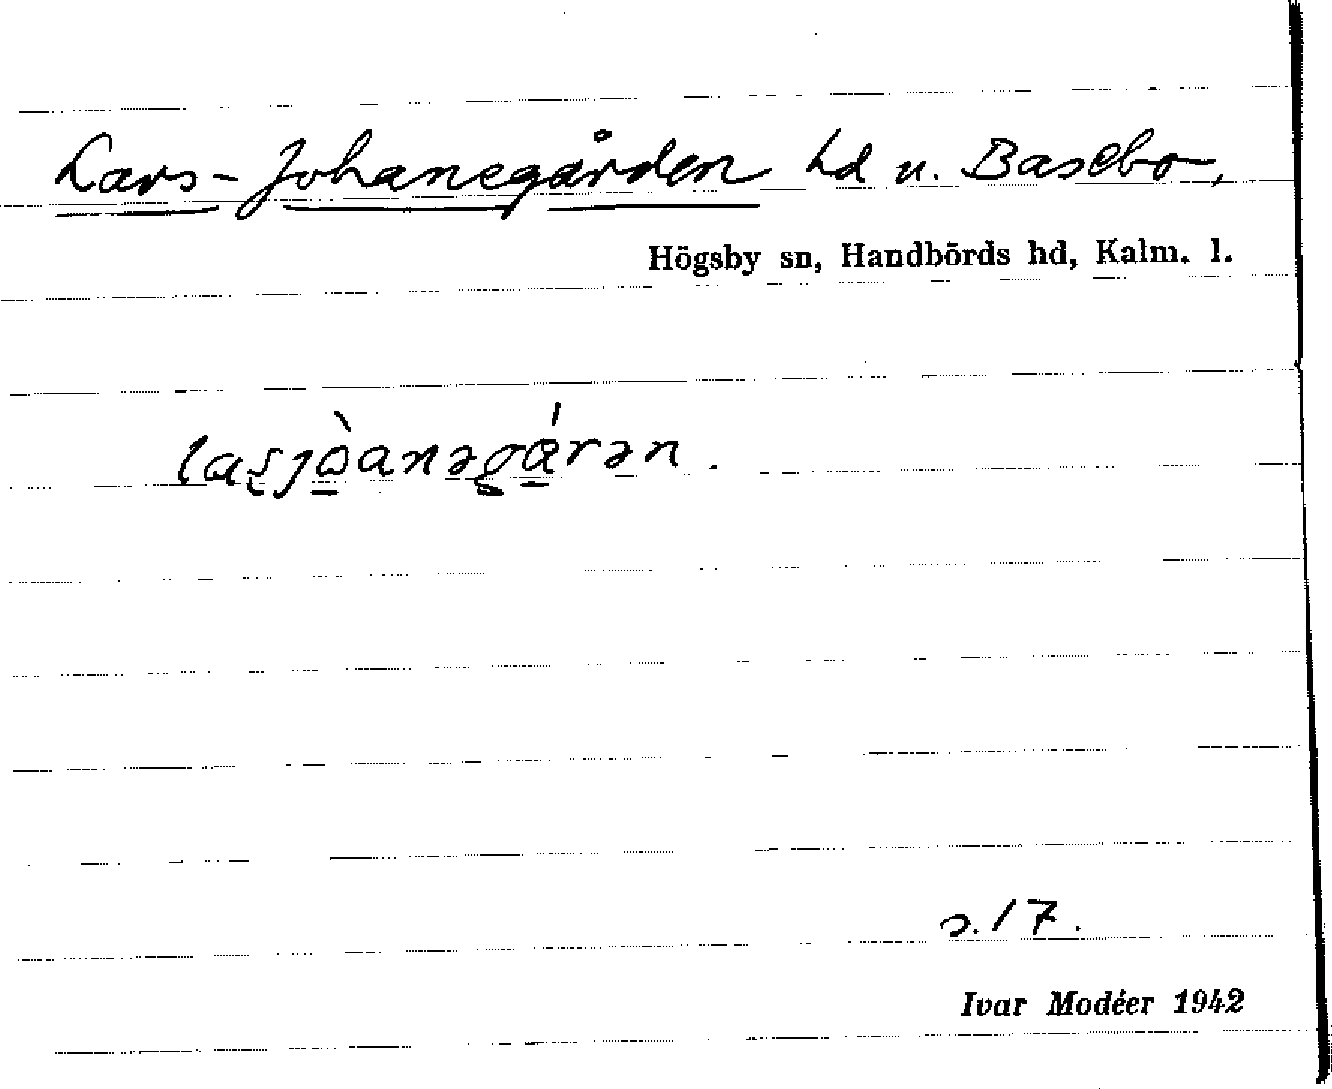 Lars-Johanegården hd u. Basebo,
Högsby sn, Handbörds hd, Kalm. l.
s. 17.
Ivar Modéer 1942